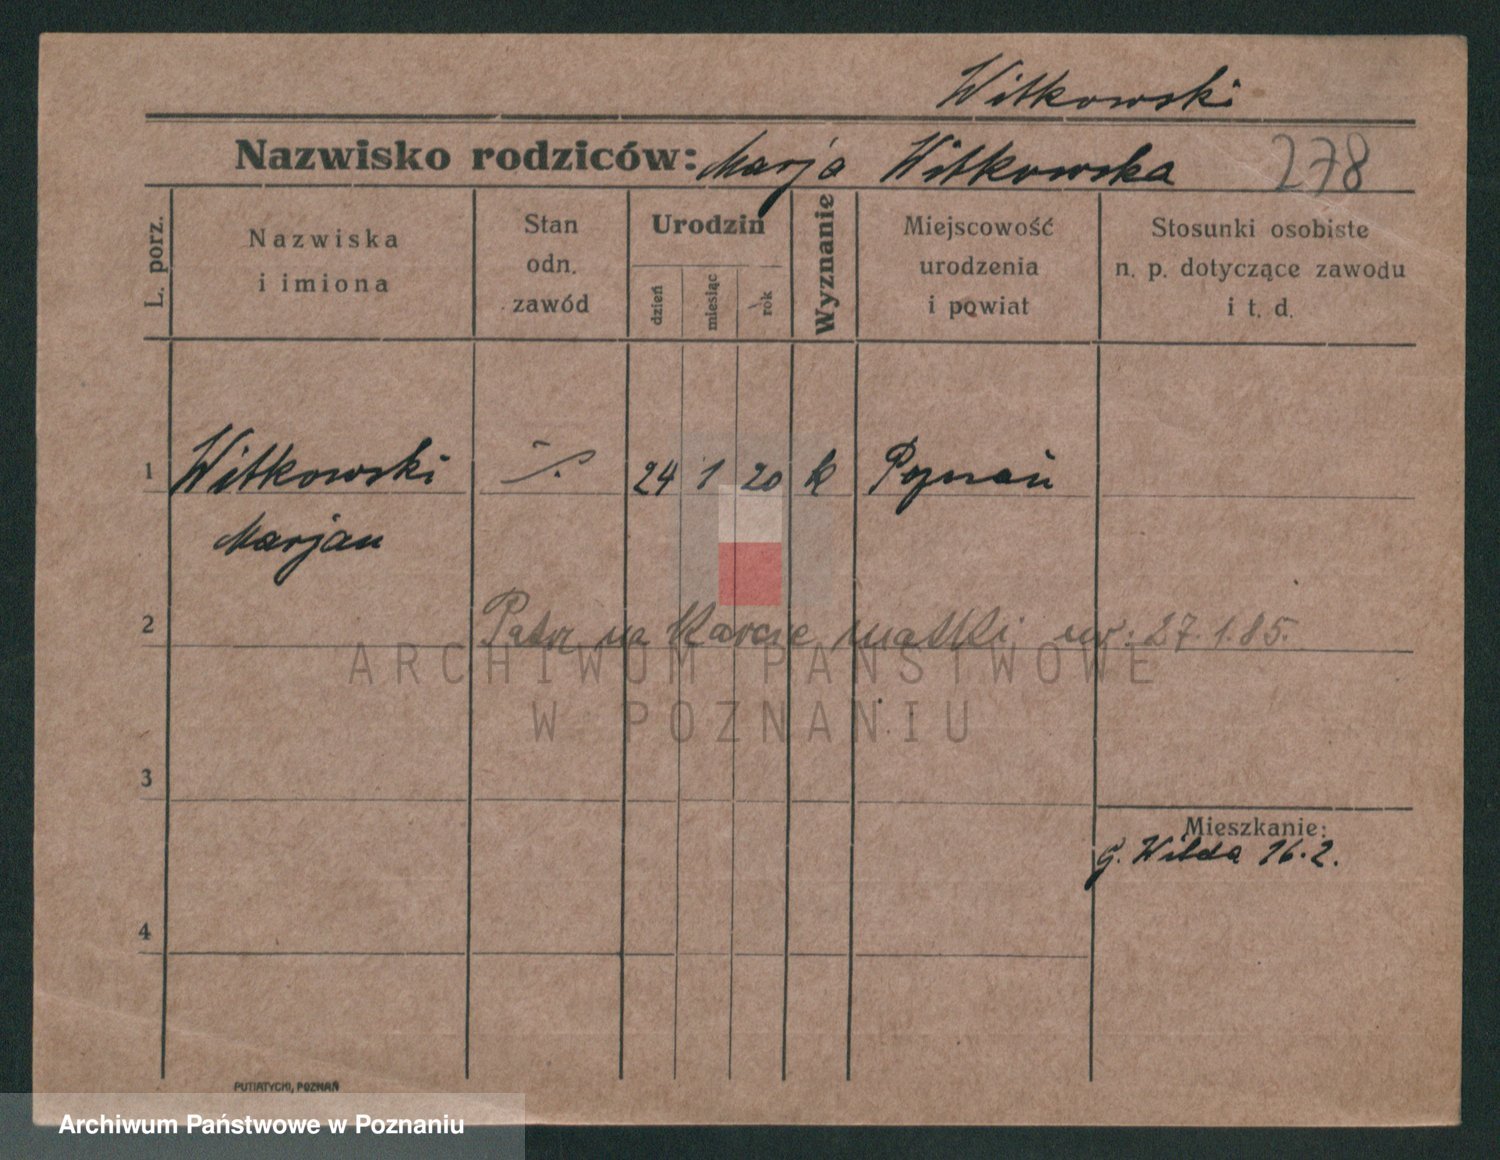 Witkowski
Nazwisko rodziców: Marja Witkowska 278
L. porz.
Nazwiska
i imiona
Stan
odn.
zawód
Urodzin
dzień
miesiąc
rok
Wyznanie
Miejscowość
urodzenia
i powiat
Stosunki osobiste
n. p. dotyczące zawodu
i t. d.
1 Witkowski 24 1 20 k Poznań
Marjan
2 Patrz na Karcie matki ur. 27.1.85.
ARCHIWUM PAŃSTWOWE
W POZNANIU
3
Mieszkanie:
G. Wilda 76.2.
4
PUTIATYCKI, POZNAŃ
Archiwum Państwowe w Poznaniu